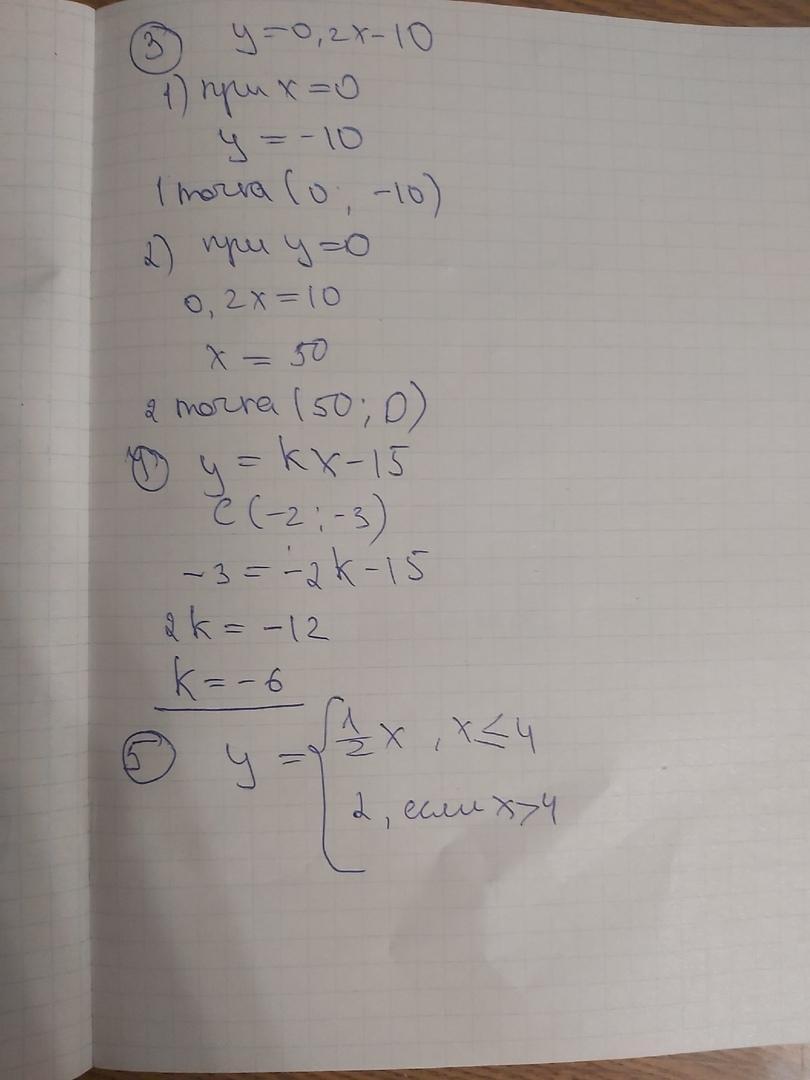 3 y=0,2x-10
1) при x=0
y = -10
1 точка (0; -10)
2) при y=0
0,2x=10
x = 50
2 точка (50; 0)
4 y = kx-15
C (-2; -3)
-3 = -2k-15
2k = -12
k = -6
5 y = { 1/2 x, x≤4
2, если x>4